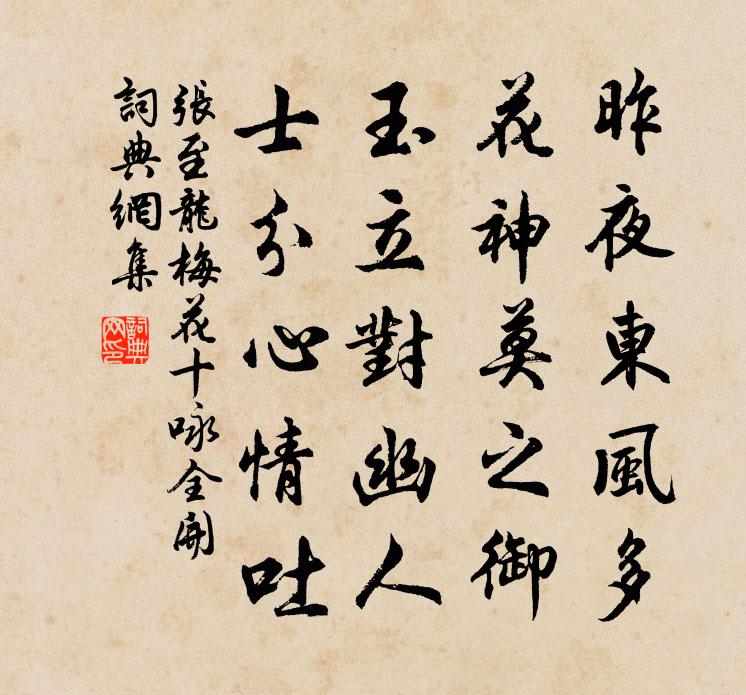 昨夜東風多
花神莫之御
玉立對幽人
士分心情吐
張至龍梅花十咏全開
詞典網集
詞典网印